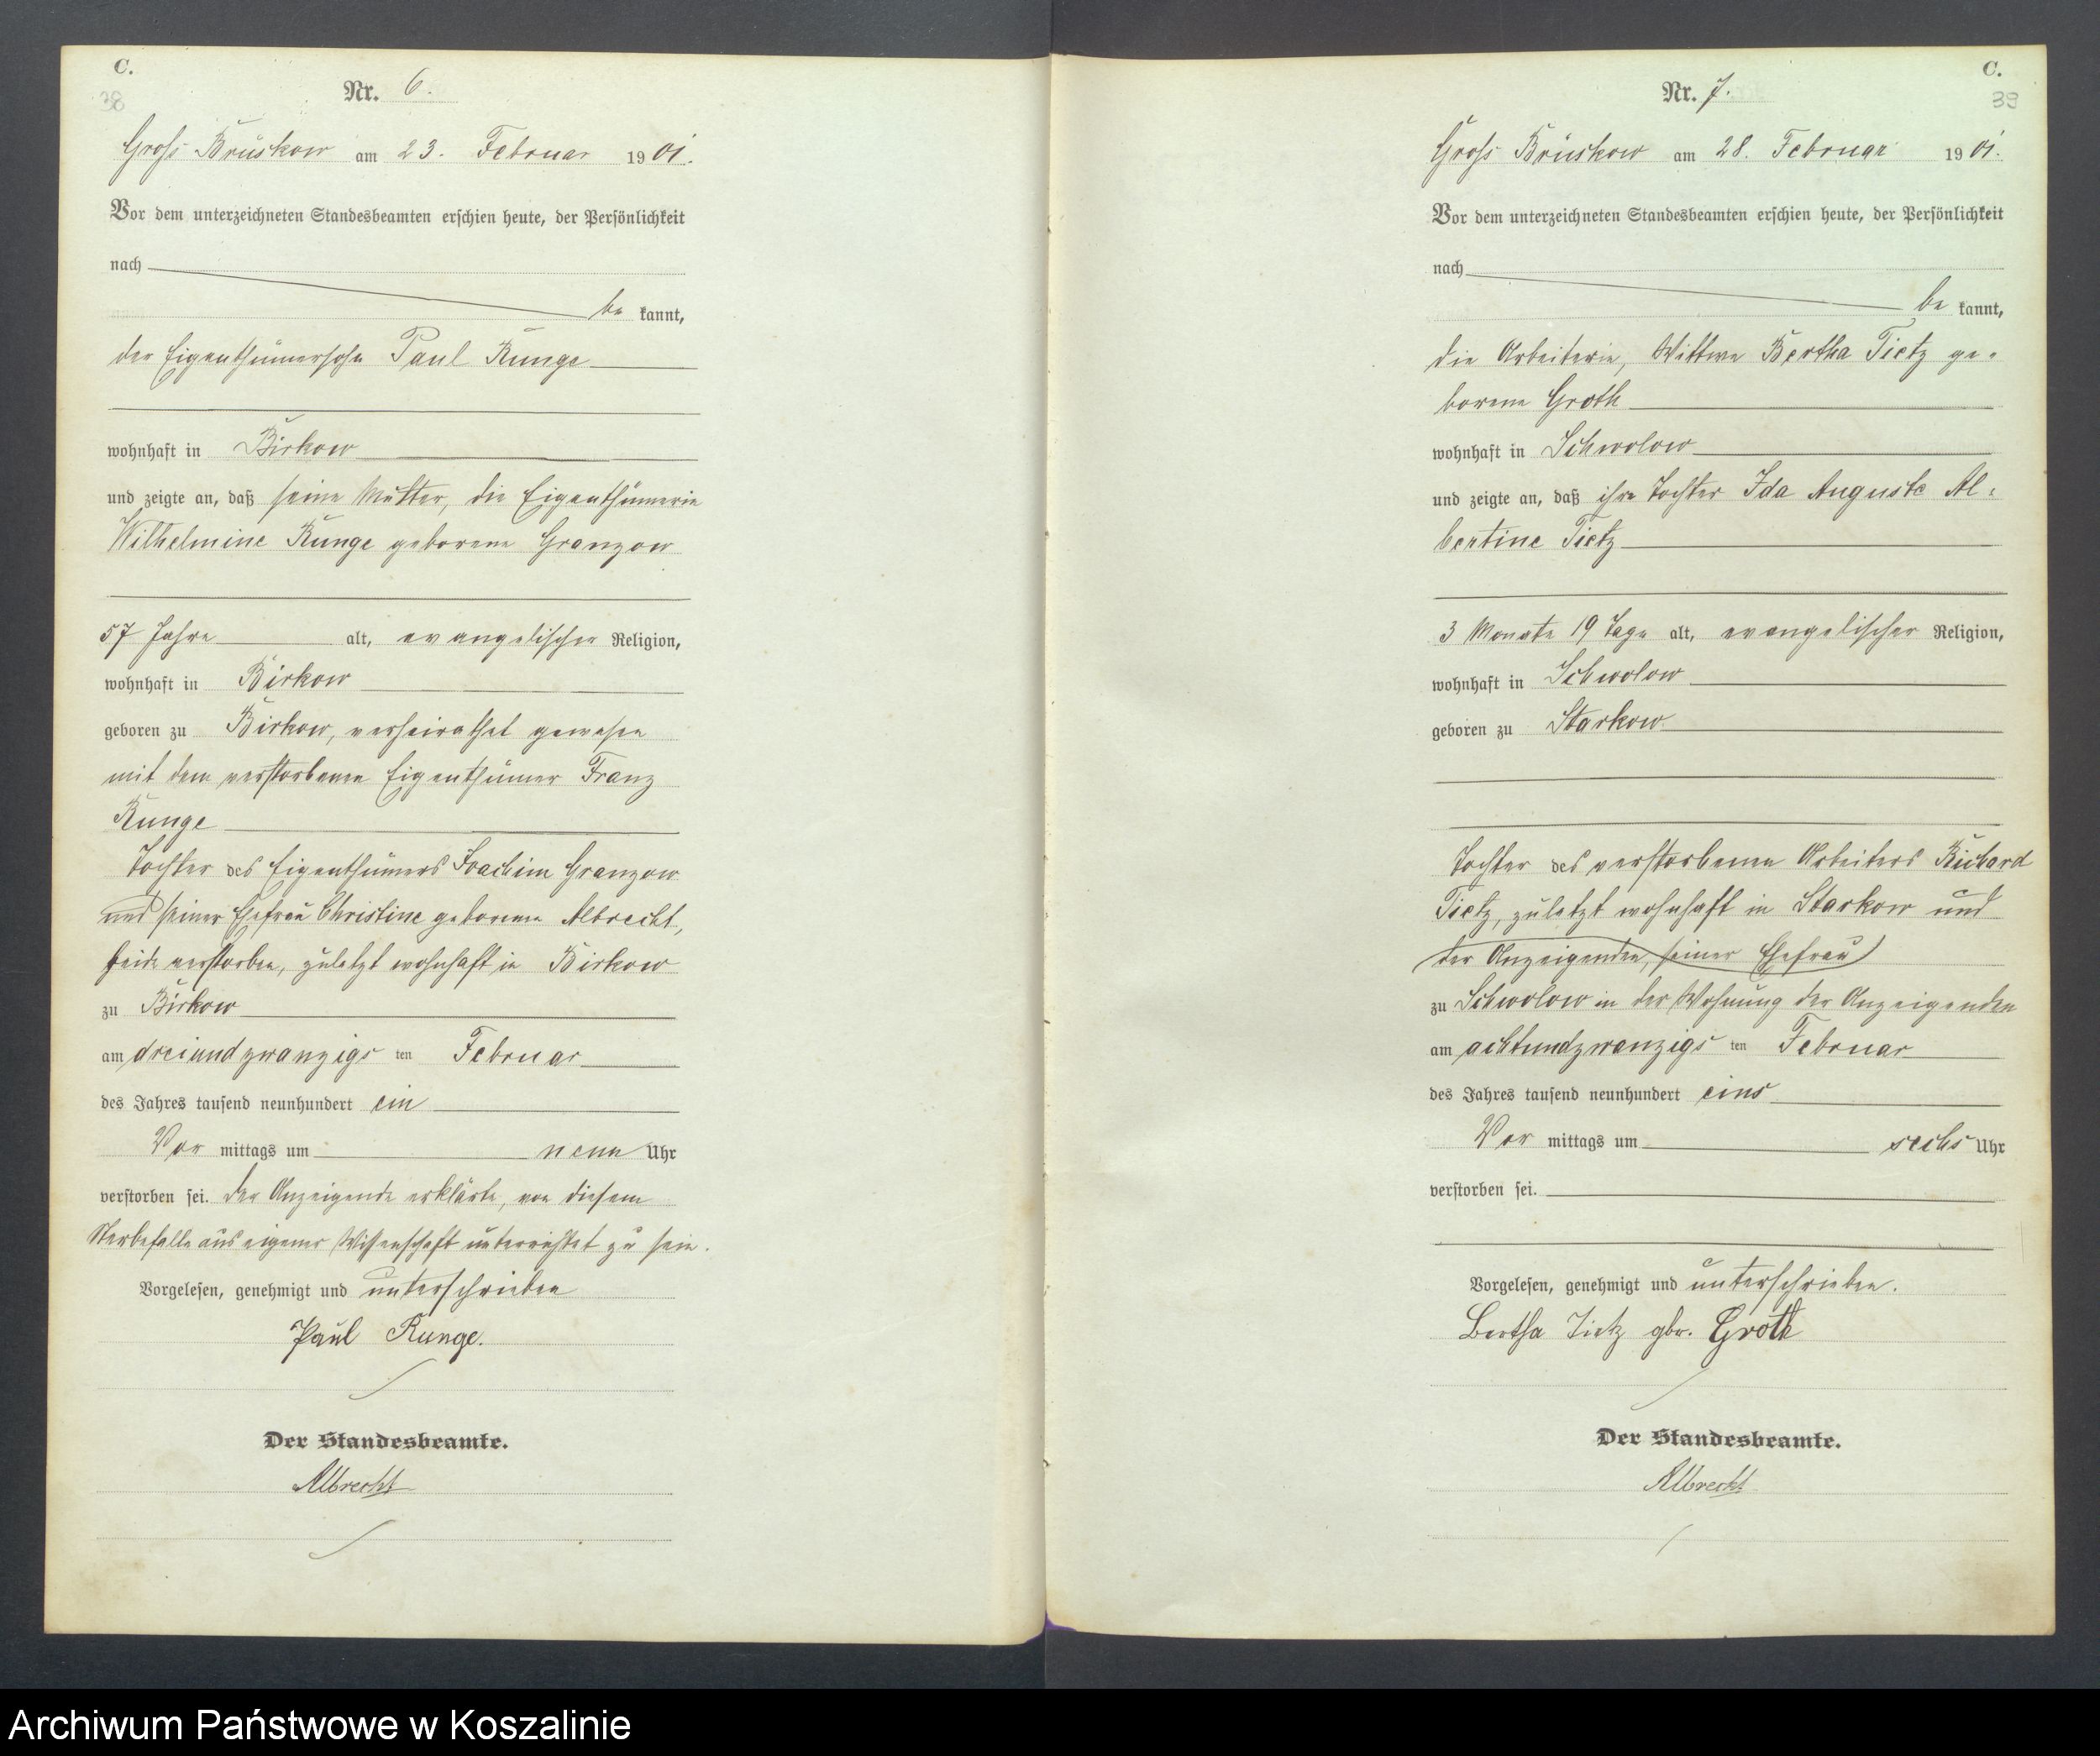 C.
38
Nr. 6.
Gross Brüskow am 23. Februar 1901.
Vor dem unterzeichneten Standesbeamten erschien heute, der Persönlichkeit
nach
be kannt,
der Eigenthümersohn Paul Runge
wohnhaft in Birkow
und zeigte an, daß seine Mutter, die Eigenthümerin
Wilhelmine Runge geborene Granzow
57 Jahre alt, evangelischer Religion,
wohnhaft in Birkow
geboren zu Birkow, verheirathet gewesen
mit dem verstorbenen Eigenthümer Franz
Runge
Tochter des Eigenthümers Joachim Granzow
und seiner Ehefrau Christine geborene Albrecht,
beide verstorben, zuletzt wohnhaft in Birkow
zu Birkow
am dreiundzwanzigs ten Februar
des Jahres tausend neunhundert ein
Vor mittags um neun Uhr
verstorben sei. Der Anzeigende erklärte, von diesem
Sterbefalle aus eigener Wissenschaft unterrichtet zu sein.
Vorgelesen, genehmigt und unterschrieben
Paul Runge.
Der Standesbeamte.
Albrecht
C.
39
Nr. 7.
Gross Brüskow am 28. Februar 1901.
Vor dem unterzeichneten Standesbeamten erschien heute, der Persönlichkeit
nach
be kannt,
die Arbeiterin, Wittwe Bertha Tietz ge-
borene Groth
wohnhaft in Schwolow
und zeigte an, daß ihre Tochter Ida Auguste Al-
bertine Tietz
3 Monate 19 Tage alt, evangelischer Religion,
wohnhaft in Schwolow
geboren zu Starkow
Tochter des verstorbenen Arbeiters Richard
Tietz, zuletzt wohnhaft in Starkow und
der Anzeigenden, seiner Ehefrau
zu Schwolow in der Wohnung der Anzeigenden
am achtundzwanzigs ten Februar
des Jahres tausend neunhundert eins
Vor mittags um sechs Uhr
verstorben sei.
Vorgelesen, genehmigt und unterschrieben.
Bertha Tietz gbr. Groth
Der Standesbeamte.
Albrecht
Archiwum Państwowe w Koszalinie